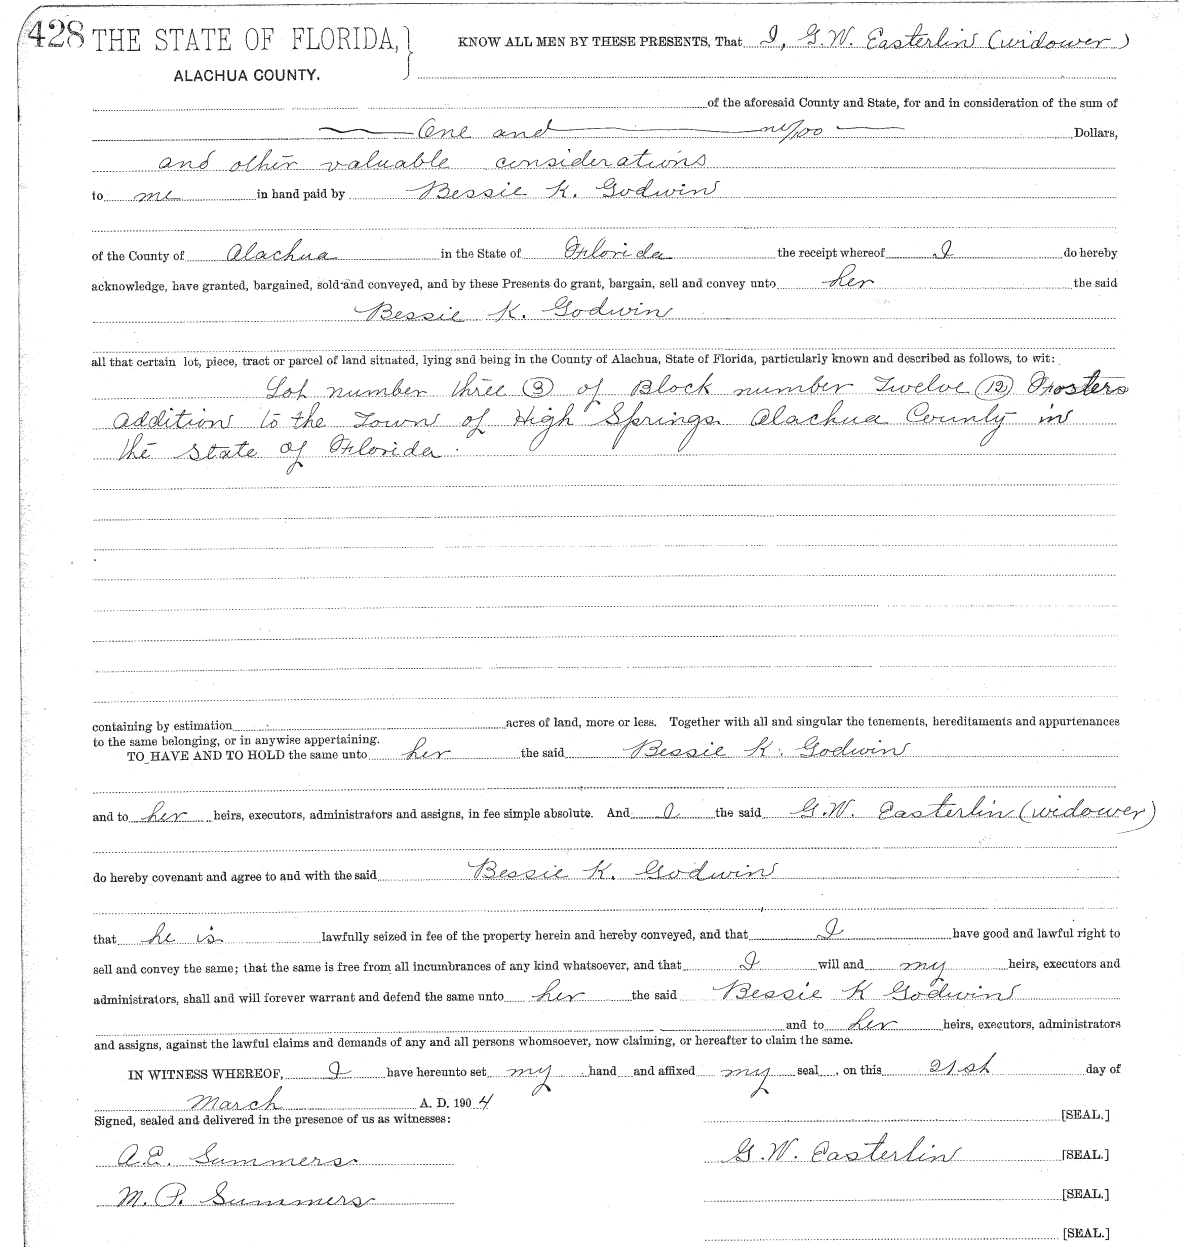 428 THE STATE OF FLORIDA, } KNOW ALL MEN BY THESE PRESENTS, That I, G.W. Easterlin (widower)
ALACHUA COUNTY.
of the aforesaid County and State, for and in consideration of the sum of
One and no/00 Dollars,
and other valuable considerations
to me in hand paid by Bessie K. Godwin
of the County of Alachua in the State of Florida the receipt whereof I do hereby
acknowledge, have granted, bargained, sold and conveyed, and by these Presents do grant, bargain, sell and convey unto her the said
Bessie K. Godwin
all that certain lot, piece, tract or parcel of land situated, lying and being in the County of Alachua, State of Florida, particularly known and described as follows, to wit:
Lot number three (3) of Block number Twelve (12) Frosters
addition to the Town of High Springs Alachua County in
the State of Florida.
containing by estimation acres of land, more or less. Together with all and singular the tenements, hereditaments and appurtenances
to the same belonging, or in anywise appertaining.
TO HAVE AND TO HOLD the same unto her the said Bessie K. Godwin
and to her heirs, executors, administrators and assigns, in fee simple absolute. And I the said G.W. Easterlin (widower)
do hereby covenant and agree to and with the said Bessie K. Godwin
that he is lawfully seized in fee of the property herein and hereby conveyed, and that I have good and lawful right to
sell and convey the same; that the same is free from all incumbrances of any kind whatsoever, and that I will and my heirs, executors and
administrators, shall and will forever warrant and defend the same unto her the said Bessie K Godwin
and to her heirs, executors, administrators
and assigns, against the lawful claims and demands of any and all persons whomsoever, now claiming, or hereafter to claim the same.
IN WITNESS WHEREOF, I have hereunto set my hand and affixed my seal , on this 21st day of
March A. D. 1904
Signed, sealed and delivered in the presence of us as witnesses: [SEAL.]
A.E. Summers G.W. Easterlin [SEAL.]
M.P. Summers [SEAL.]
[SEAL.]